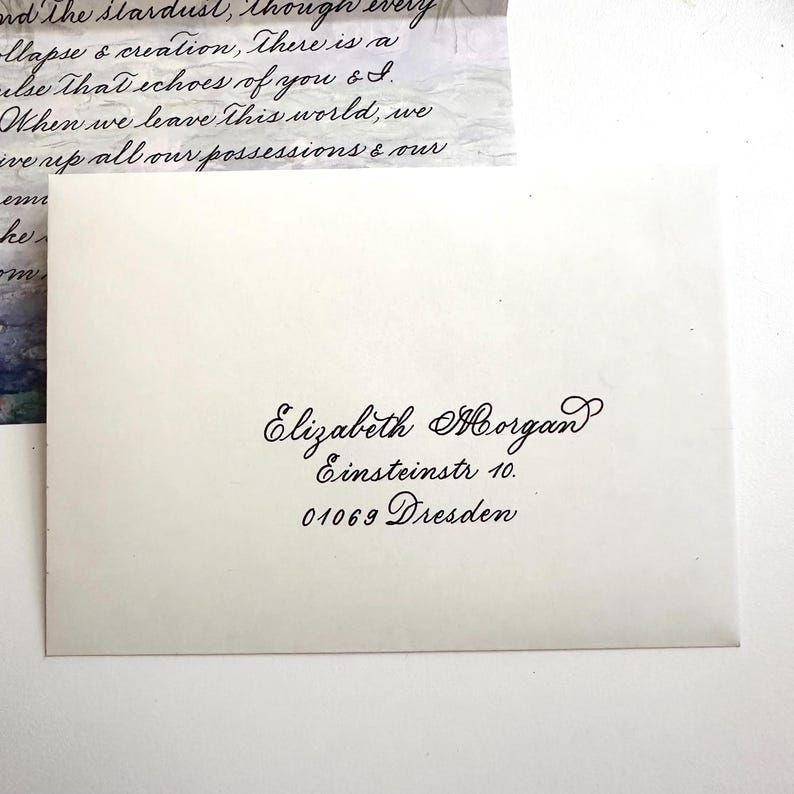 and the stardust, though every
collapse & creation, there is a
pulse that echoes of you & I.
When we leave this world, we
give up all our possessions & our
Elizabeth Morgan
Einsteinstr 10.
01069 Dresden